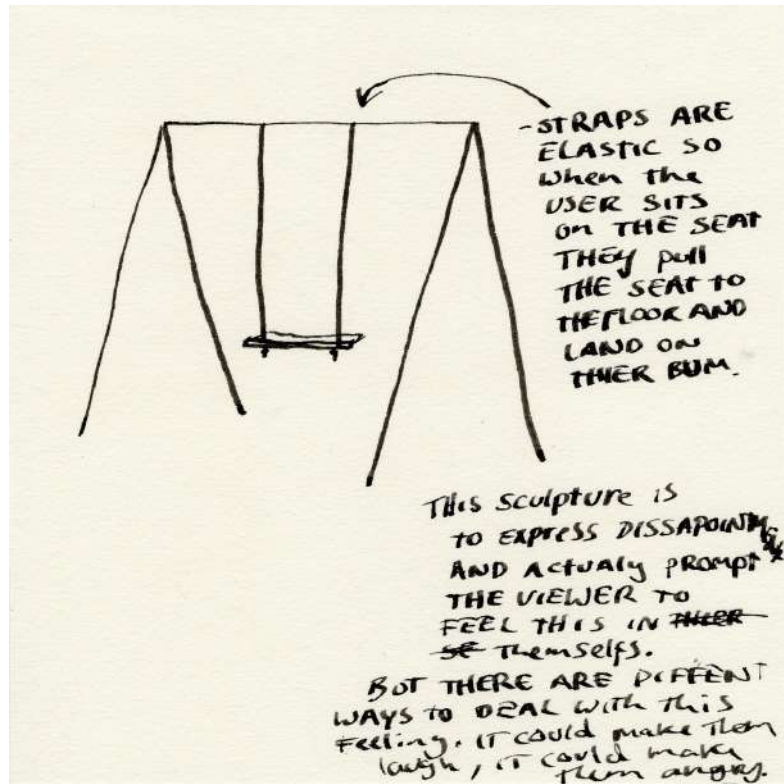 -STRAPS ARE
ELASTIC SO
when the
USER SITS
on THE SEAT
THEY pull
THE SEAT to
THE FLOOR AND
LAND ON
THIER BUM.
THIS SCULPTURE IS
to EXPRESS DISSAPOINTMENT
AND ACTUALY PROMPT
THE VIEWER TO
FEEL THIS IN THIER
SE THEMSELFS.
BUT THERE ARE DIFFENT
WAYS TO DEAL WITH THIS
FEELING. IT COULD MAKE THEM
laugh, IT COULD MAKE
THEM ANGRY.